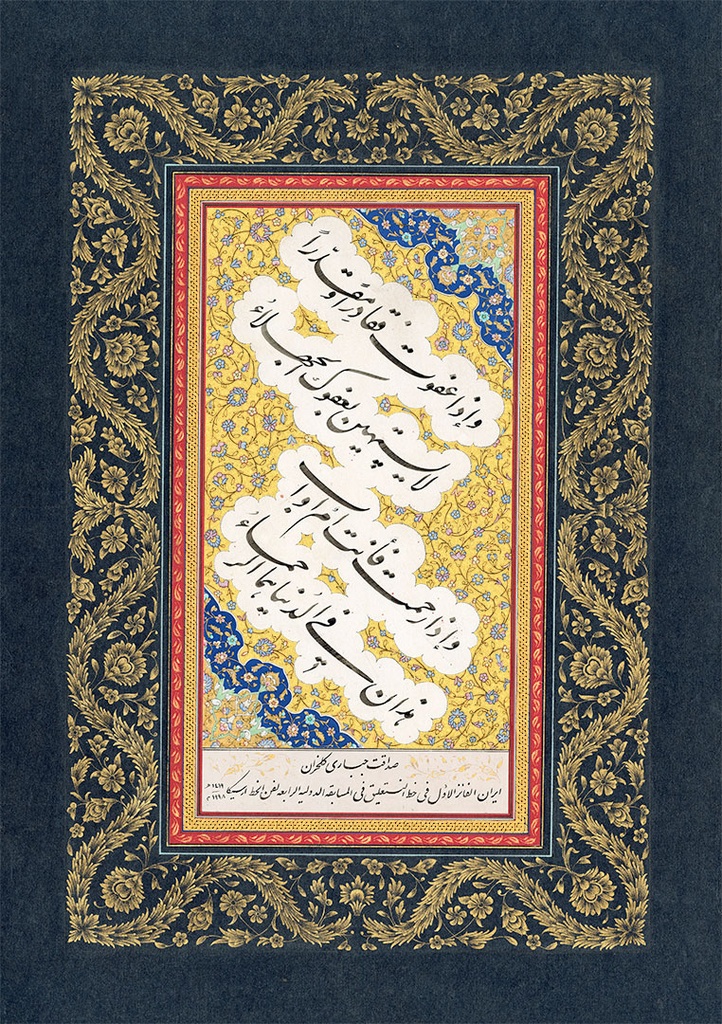 وإذا عفوت فقادِراً ومقَدّراً
لا يستهين بعفوك الجهلاءُ
وإذا رحمت فأنت أمٌ أو أب
هذان في الدُنيا هما الرحماءُ
صداقت جباری کلخوران
ایران الفائز الاول في خط النستعلیق في المسابقة الدولیة الرابعة لفن الخط ارسیکا ١٤١٩ هـ ١٩٩٨ م